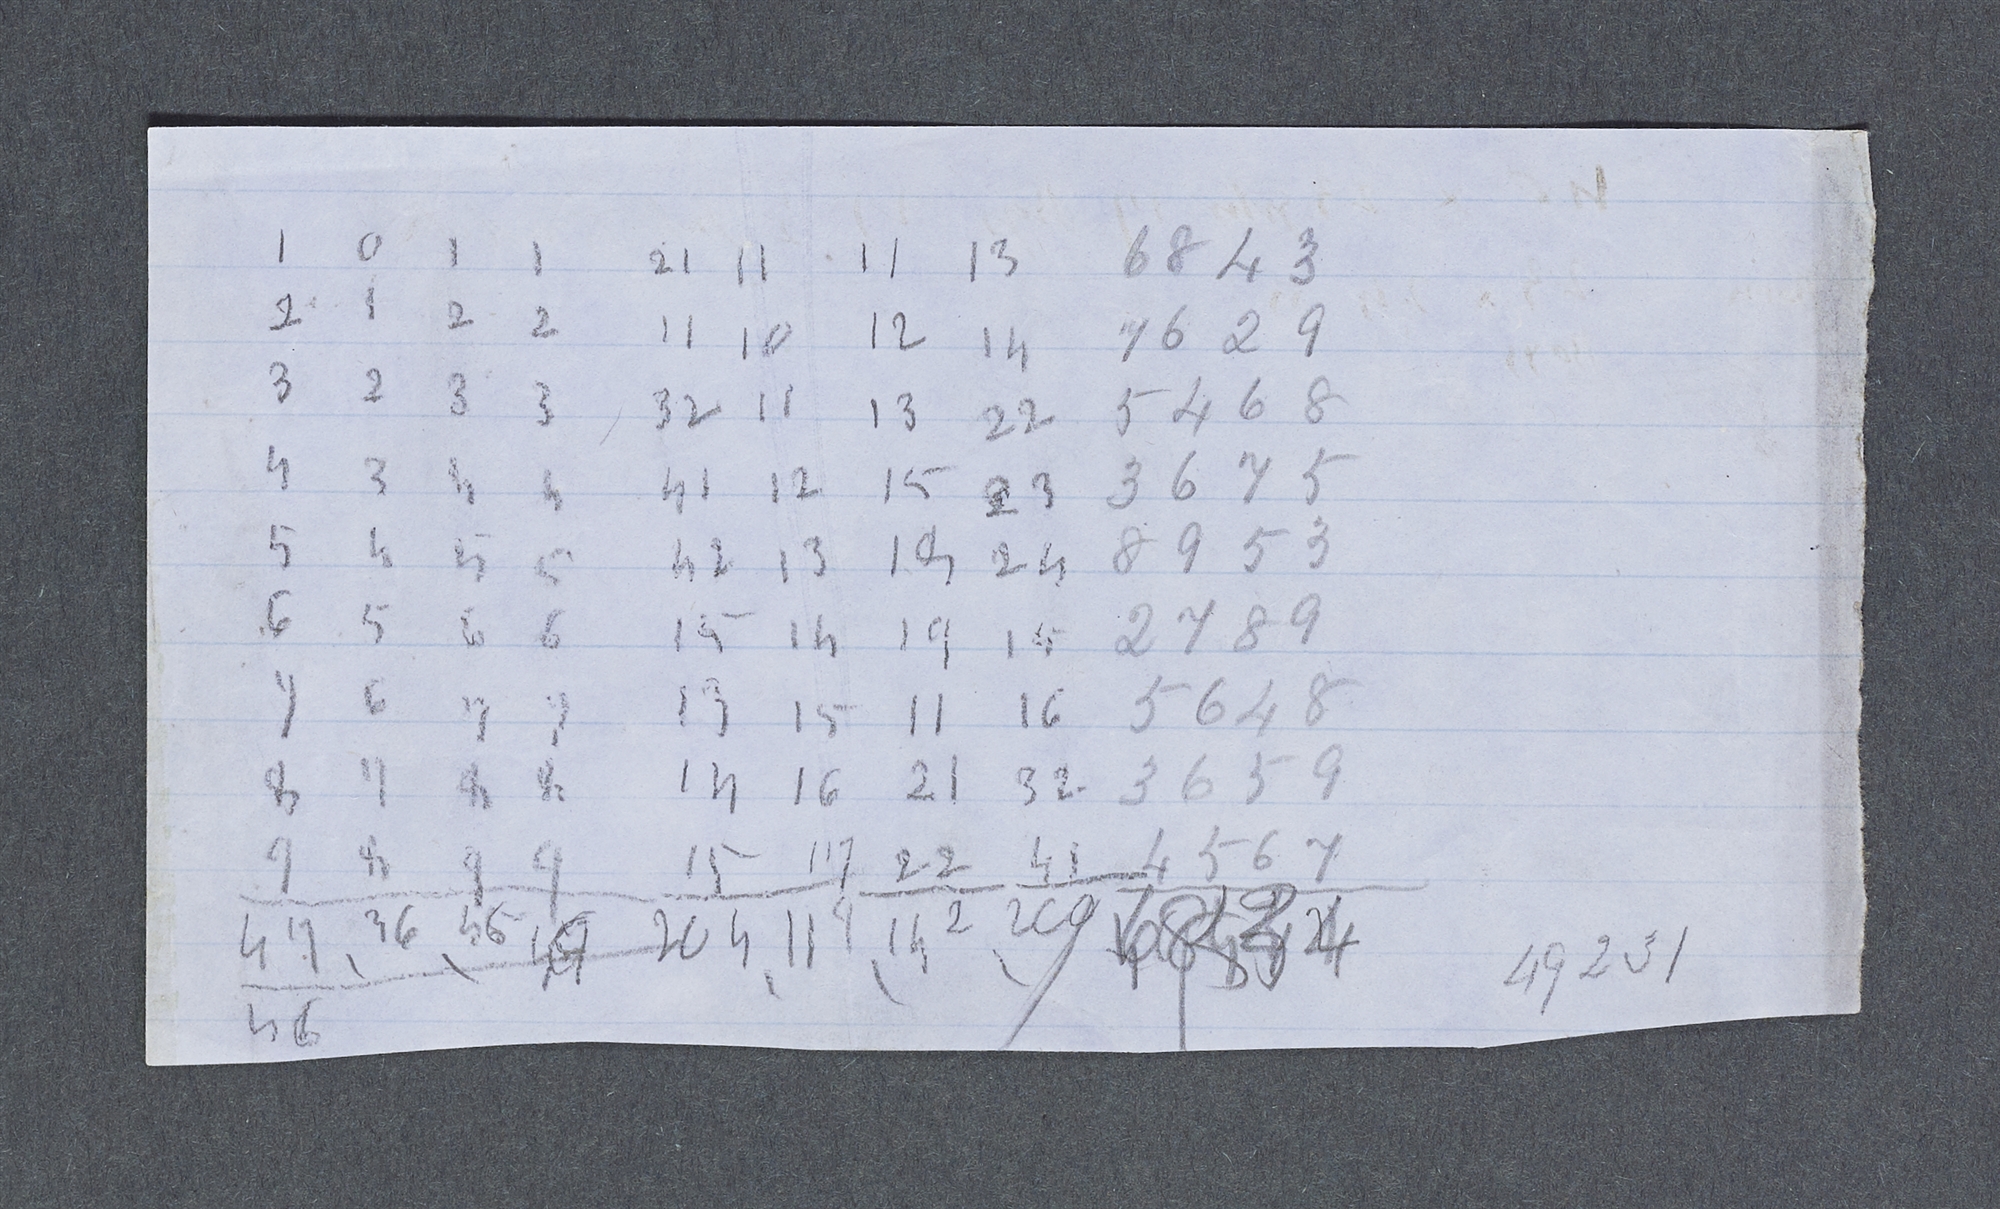 1 0 1 1 21 11 11 13 6843
2 1 2 2 11 10 12 14 7629
3 2 3 3 32 11 13 22 5468
4 3 4 4 41 12 15 23 3675
5 4 5 5 42 13 24 8953
6 5 6 6 15 14 19 15 2789
7 6 7 7 13 15 11 16 5648
8 7 8 8 14 16 21 32 3659
9 8 9 9 15 17 22 41 4567
47 36 45 204 119 142 209
49231
46